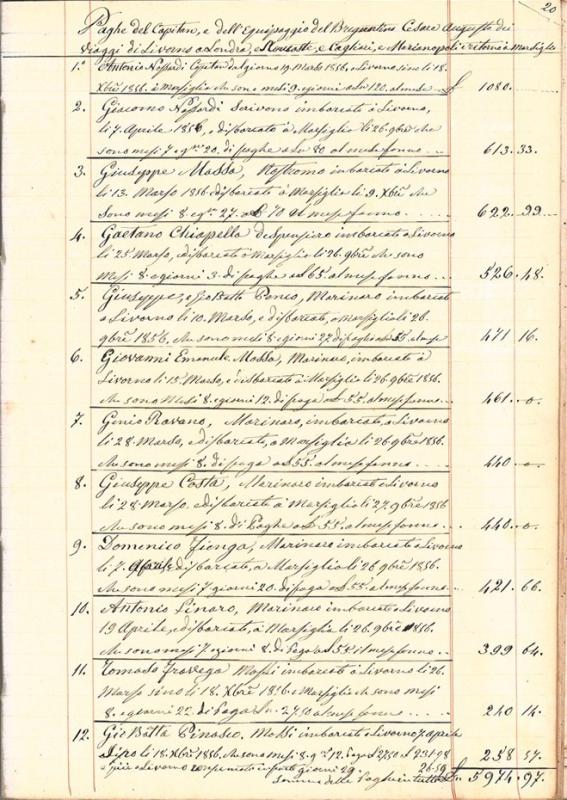 20
Paghe del Capitan, e dell'Equipaggio del Brigantino Cesare Augusto dei
Viaggi di Livorno a Londra, e Newcastle, e Cagliari, e Marianopoli e ritorno a Marsiglia
1.º Antonio Nassardi Capitan dal giorno 19 Marzo 1856, a Livorno sino li 18.
Xbre 1856, a Marsiglia che sono mesi 9. giorni a Ln 120. al mese £ 1080.
2. Giacomo Nassardi Scrivano imbarcato a Livorno,
li 7. Aprile 1856, e disbarcato à Marsiglia li 26. 9bre che
sono mesi 7. e gni 20. di paghe a Ln 80 al mese fanno . . 613. 33.
3. Giuseppe Massa, Nostromo imbarcato a Livorno
li 13. Marzo 1856 disbarcato à Marsiglia li 9. Xbre che
sono mesi 8 e gni 27. a £ 70 al mese fanno . . . . 622. 99
4. Gaetano Chiapella Despensiero imbarcato a Livorno
li 25. Marzo, e disbarcato à Marsiglia li 26. 9bre che sono
Mesi 8. e giorni 3. di paghe a £ 65. al mese fanno . . . 526. 48.
5. Giuseppe, e Gio Batta Marinaro, imbarcati
a Livorno li 10. Marzo, e disbarcati, a Marsiglia li 26.
9bre 1856, che sono mesi 8. e giorni 27. di paghe a £ 55. al mese 471 16.
6. Giovanni Emanuele Massa, Marinaro, imbarcato à
Livorno li 15. Marzo, e disbarcato à Marsiglia li 26. 9bre 1856.
che sono Mesi 8. e giorni 12. di paga a £ 55. al mese fanno . . 461. 0.
7. Genio Ravano, Marinaro, imbarcato, a Livorno
li 28. Marzo, e disbarcato, a Marsiglia li 26. 9bre 1856.
che sono mesi 8. di paga a £ 55. al mese fanno . . . . 440 0.
8. Giuseppe Costa, Marinaro imbarcato a Livorno
li 28 Marzo. e disbarcato à Marsiglia li 27. 9bre 1856
che sono mesi 8. di Paghe a £ 55. al mese fanno . . . 440. 0.
9. Domenico Marinaro imbarcato a Livorno
li 7. Aprile disbarcato, a Marsiglia li 26 9bre 1856.
che sono mesi 7 giorni 20. di paga a £ 55 al mese fanno . . . 421. 66.
10. Antonio Marinaro imbarcato a Livorno
19 Aprile, e disbarcato, à Marsiglia li 26. 9bre 1856.
che sono mesi 7 giorni 8. di Paga a £ 55 al mese fanno . . . . 399 64.
11. Tomaso Travega Mozzi imbarcato a Livorno li 26.
Marzo sino li 18. Xbre 1856. a Marsiglia che sono mesi
8. e giorni 22. di Paga Ln. 27.50 al mese fanno . . . 240 14.
12. Gio Batta Mozzi imbarcato a Livorno 7 aprile
sino li 18. Xbre 1856. che sono mesi 8. gni 12. Paga £ 27.50 £ 231.98
a Livorno giorni 29. 26.59 258 57.
somma delle Paghe in tutto £ 5974. 97.